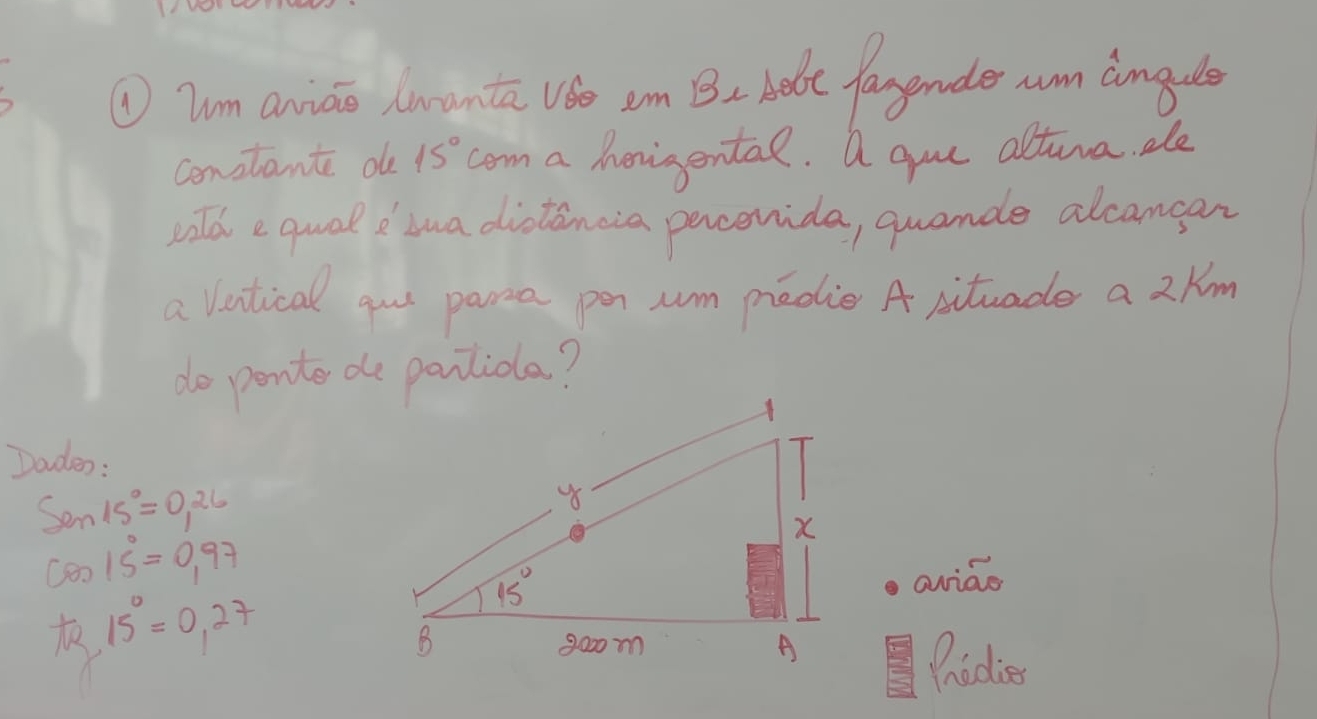 ① Um avião levanta vôo em B e sobe fazendo um ângulo
constante de 15° com a horizontal. A que altura ele
está e qual é sua distância percorrida, quando alcançar
a vertical que passa por um prédio A situado a 2Km
do ponto de partida?
Dados:
Sen 15° = 0,26
cos 15° = 0,97
tg 15° = 0,27
y
x
15°
B
2000 m
A
• avião
Prédio